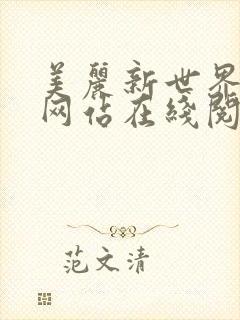 美麗新世界
网佔在綫閱
范文清